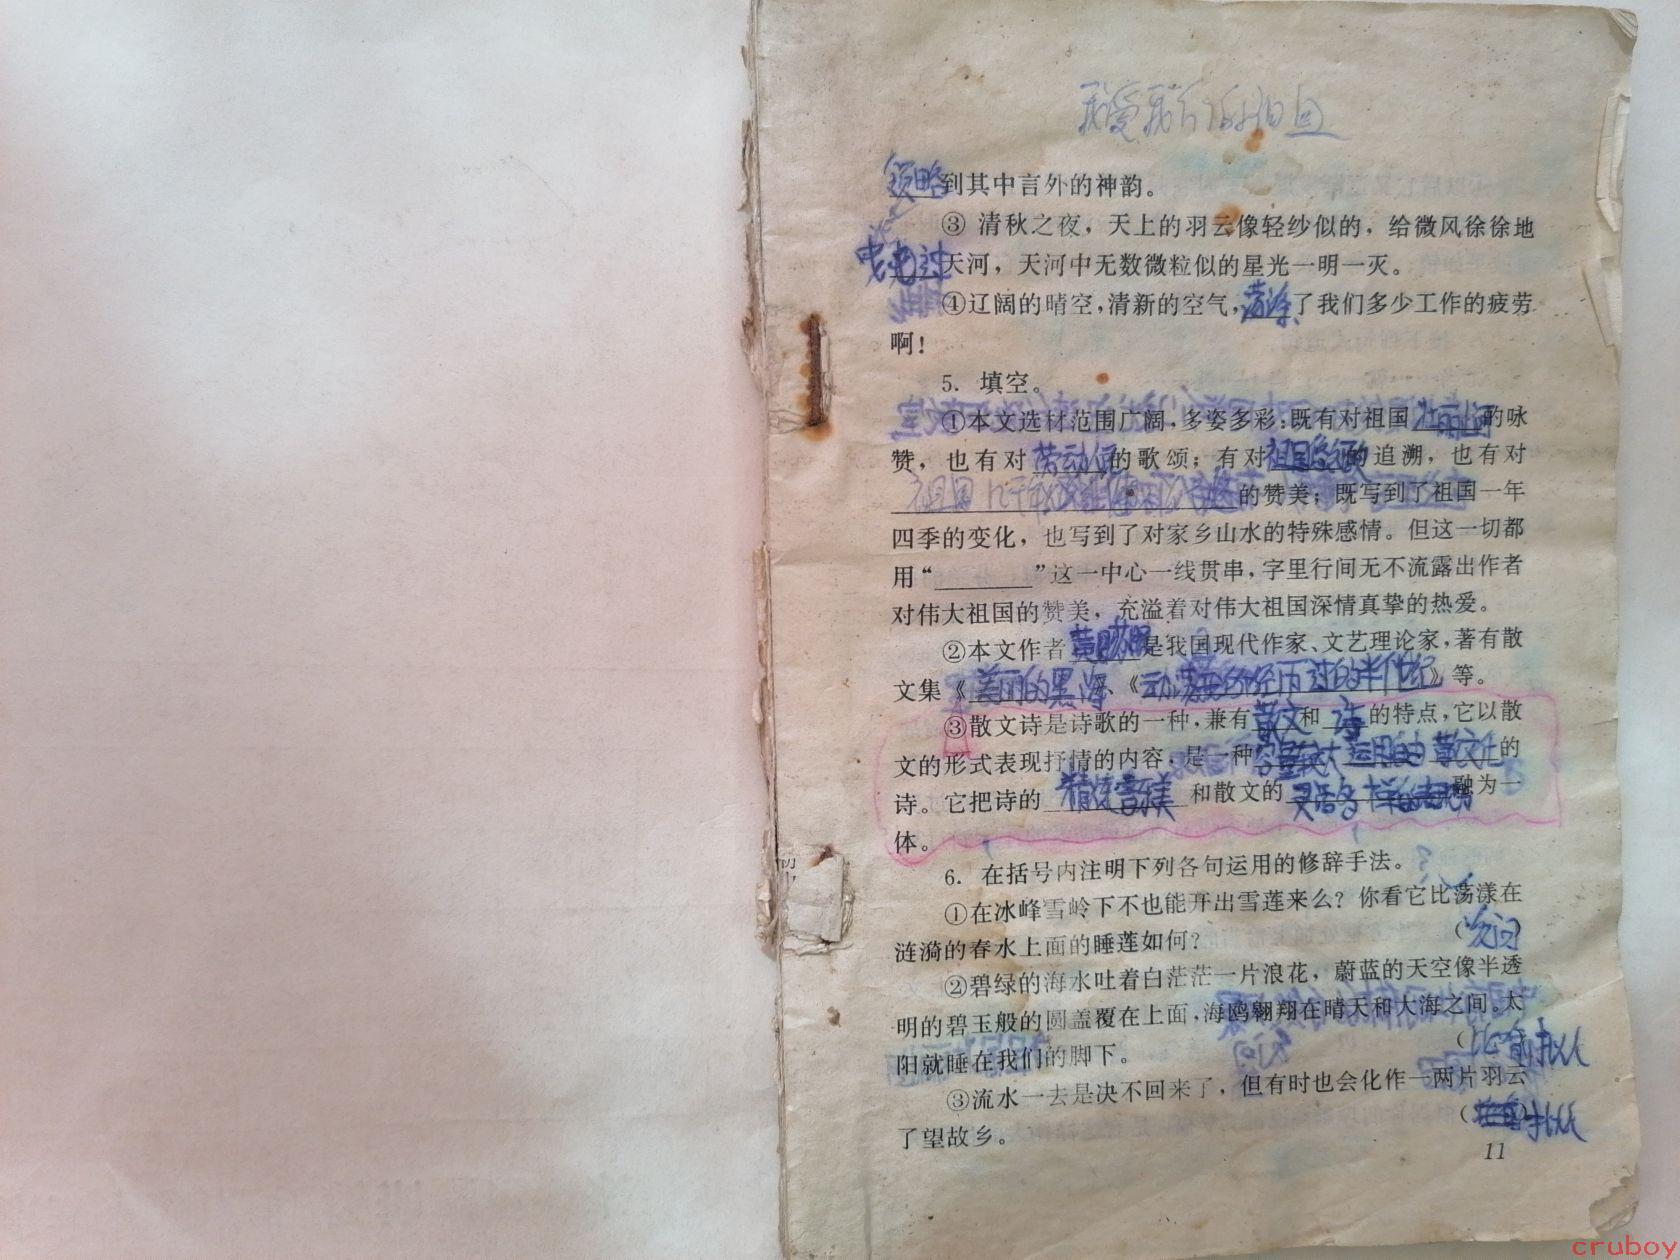 我爱我们的祖国
领略到其中言外的神韵。
③ 清秋之夜，天上的羽云像轻纱似的，给微风徐徐地
天河，天河中无数微粒似的星光一明一灭。
④辽阔的晴空，清新的空气，荡涤了我们多少工作的疲劳
啊！
5. 填空。
①本文选材范围广阔，多姿多彩：既有对祖国 的咏
赞，也有对劳动人民的歌颂；有对祖国 的追溯，也有对
的赞美；既写到了祖国一年
四季的变化，也写到了对家乡山水的特殊感情。但这一切都
用“________”这一中心一线贯串，字里行间无不流露出作者
对伟大祖国的赞美，充溢着对伟大祖国深情真挚的热爱。
②本文作者黄 是我国现代作家、文艺理论家，著有散
文集《美丽的黑海》、《动荡：我所经历的半世纪》等。
③散文诗是诗歌的一种，兼有散文和诗的特点，它以散
文的形式表现抒情的内容，是一种容量较大运用自由散文化的
诗。它把诗的精练音乐美和散文的 融为一
体。
6. 在括号内注明下列各句运用的修辞手法。
①在冰峰雪岭下不也能开出雪莲来么？你看它比荡漾在
涟漪的春水上面的睡莲如何？ （反问）
②碧绿的海水吐着白茫茫一片浪花，蔚蓝的天空像半透
明的碧玉般的圆盖覆在上面，海鸥翱翔在晴天和大海之间。太
阳就睡在我们的脚下。 （比喻拟人
③流水一去是决不回来了，但有时也会化作一两片羽云
了望故乡。 （拟人
11
cruboy